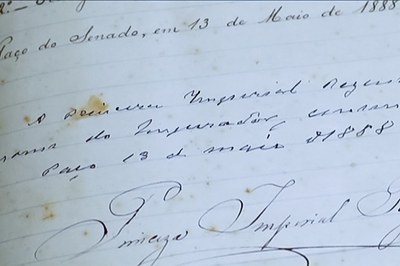 Paço do Senado, em 13 de Maio de 1888
A Princeza Imperial Regen
do Imperador,
Paço 13 de maio de 1888
Princeza Imperial